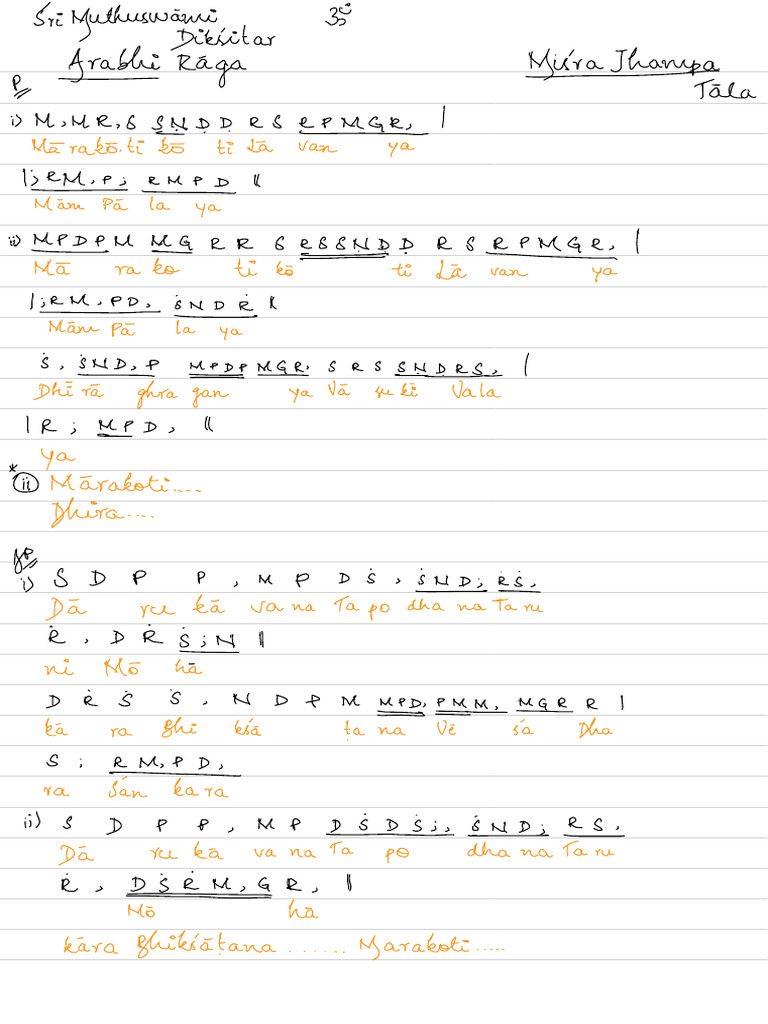 Sri Muthuswāmi ॐ
Dikśitar
Arabhi Rāga Miśra Jhampa
Tāla
P
i) M, M R, S S N D D R S R P M G R, |
Mā ra kō. ti kō ti Lā van ya
|; R M, P; R M P D ||
Mām Pā la ya
ii) M P D P M M G R R S R S S N D D R S R P M G R, |
Mā ra ko ti kō ti Lā van ya
|; R M, P D, Ṡ N D Ṙ ||
Mām Pā la ya
Ṡ, Ṡ N D, P M P D P M G R, S R S S N D R S, |
Dhī rā ghra gan ya Vā su ki Vala
| R ; M P D, ||
ya
* (ii) Mārakoti....
Dhira....
AP
i) S D P P, M P D Ṡ, Ṡ N D; Ṙ Ṡ,
Dā ru kā va na Ta po dha na Ta ru
Ṙ, D Ṙ Ṡ; N ||
ni Mō hā
D Ṙ Ṡ Ṡ, N D P M M P D, P M M, M G R R |
kā ra Bhi kśā ṭa na Vē śa Dha
S ; R M, P D,
ra Śan ka ra
ii) S D P P, M P D Ṡ D Ṡ;, Ṡ N D; Ṙ S,
Dā ru kā va na Ta po dha na Ta ru
Ṙ, D Ṡ Ṙ M, G R, ||
Mō hā
kāra Bhikśāṭana ...... Marakoti.....